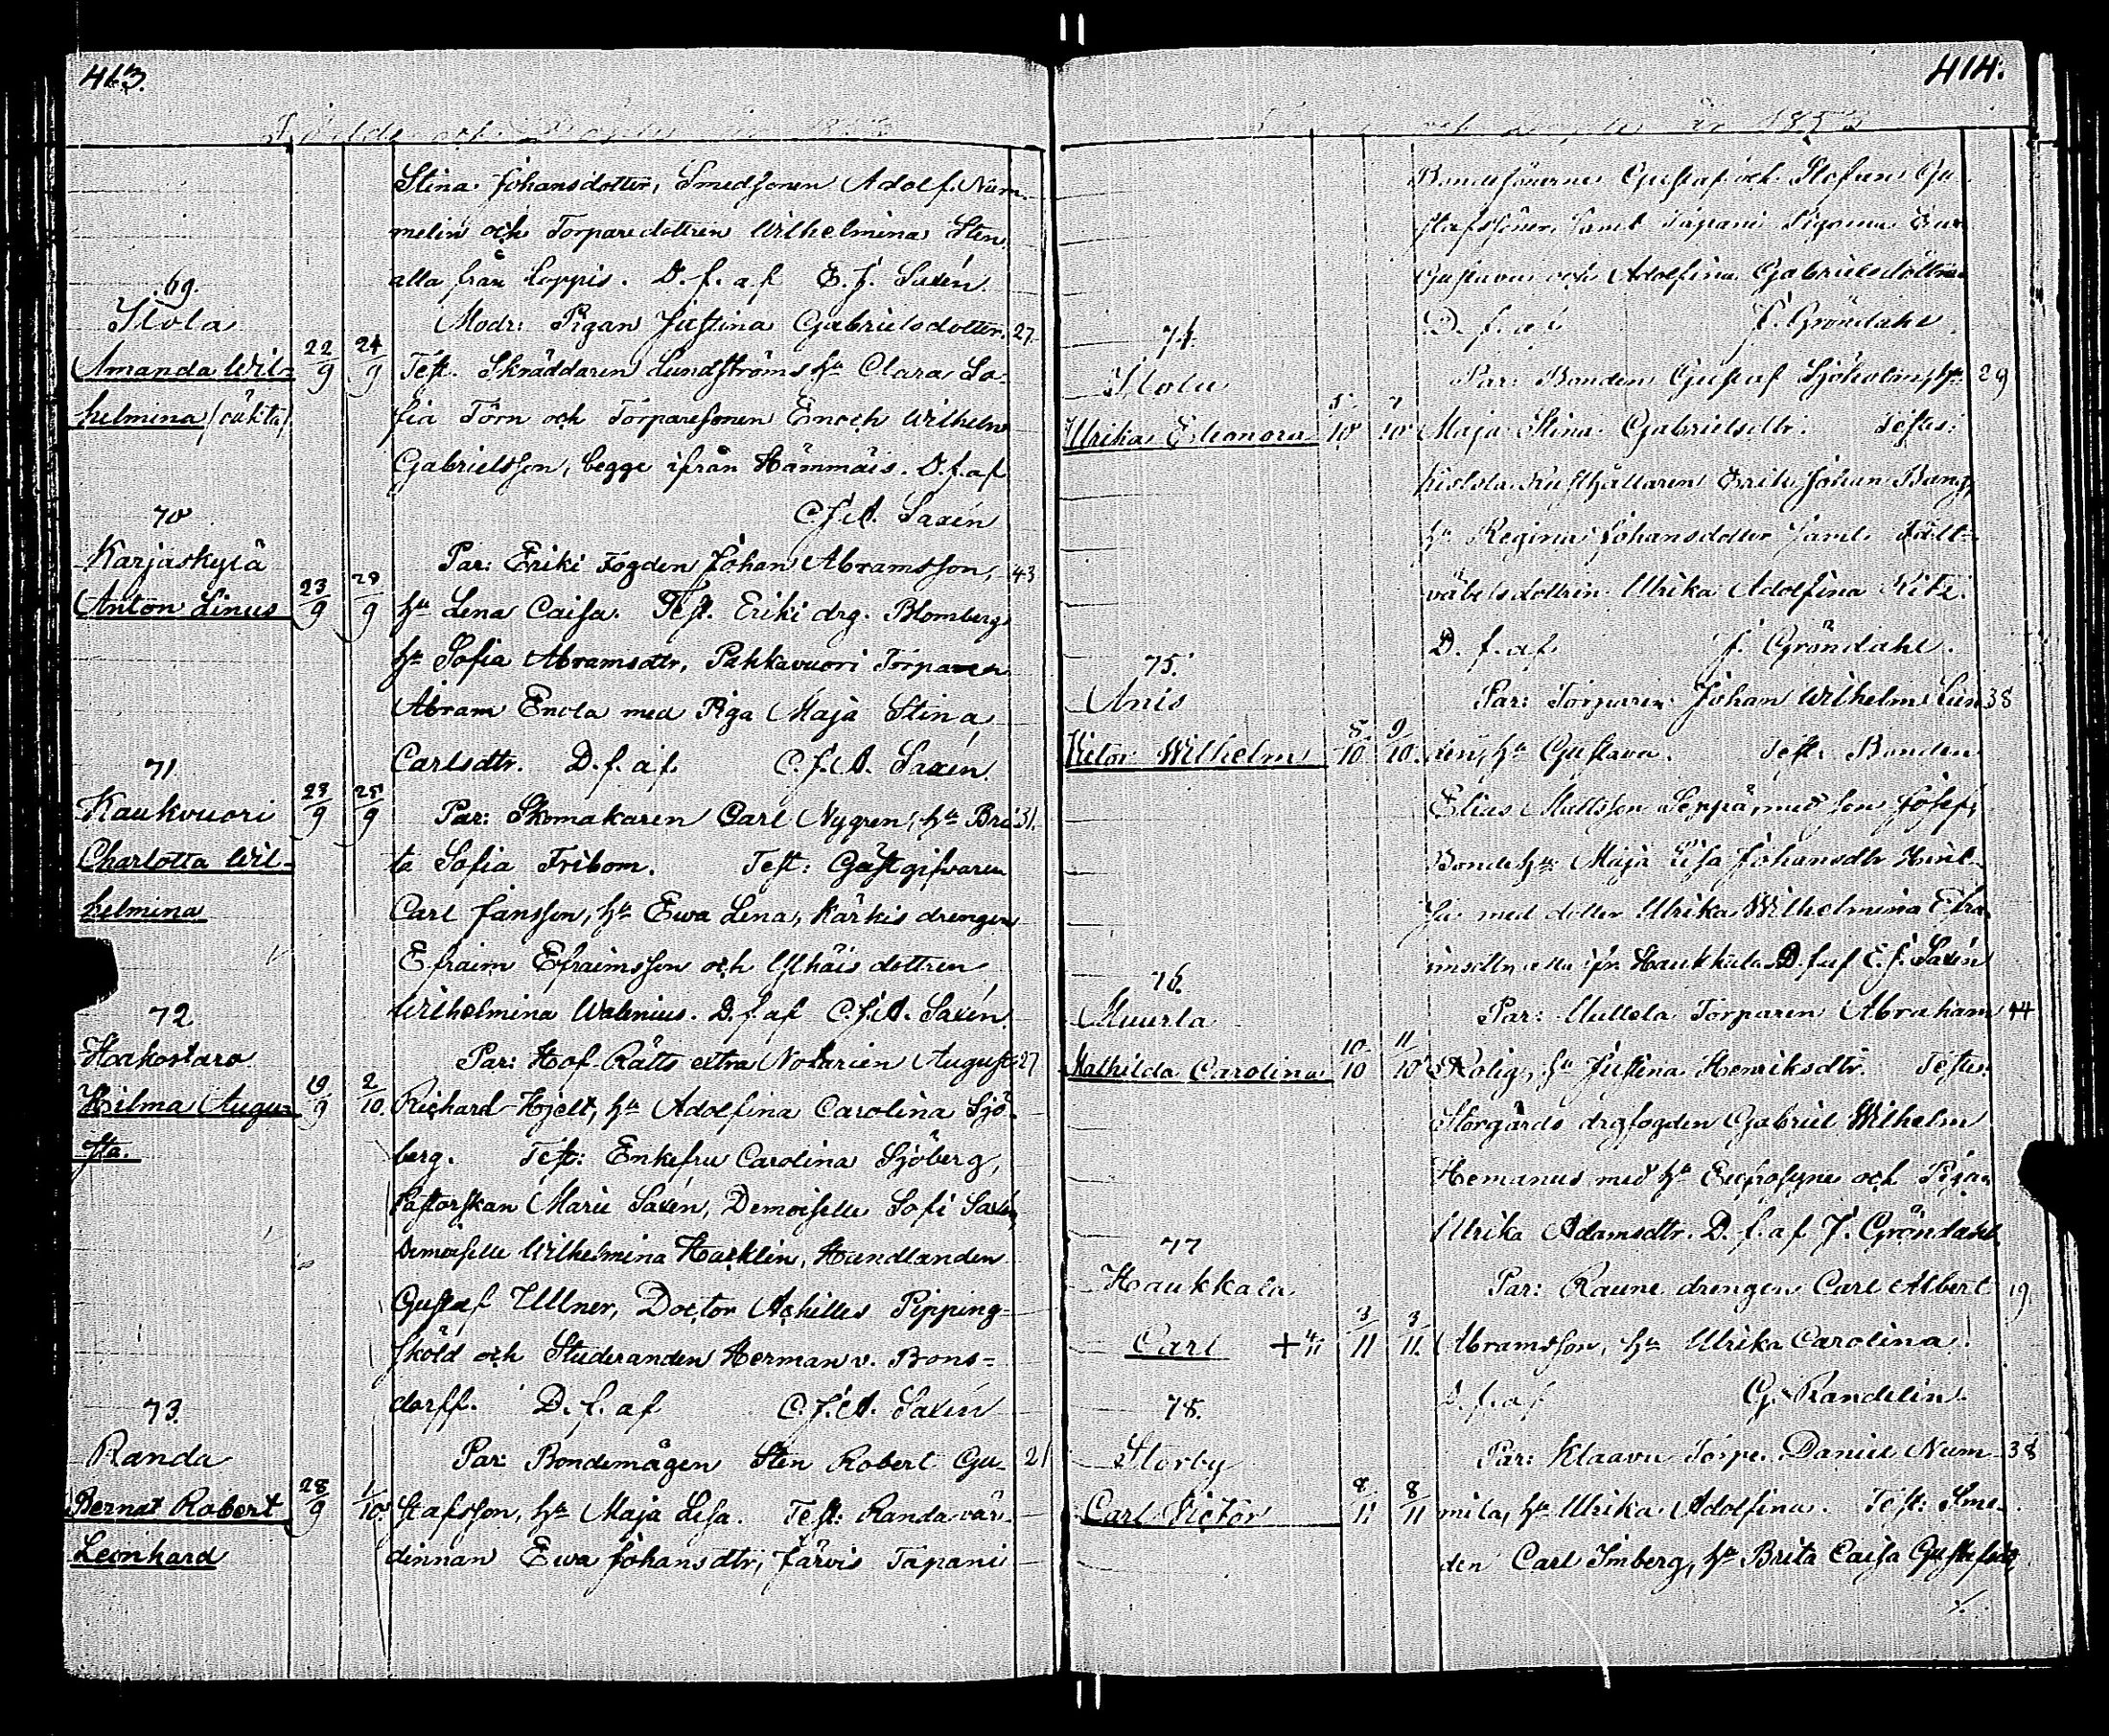 413.
Födde och Döpte år 1853
Stina Johansdotter, Smedsonen Adolf Num-
melin och Torparedottren Wilhelmina Sten
alla från Loppis. D. f. af E. J. Saxén.
69.
Isola
Amanda Wil-
helmina (oäkta)
22/9 24/9
Modr: Pigan Justina Gabrielsdotter. 27.
Test. Skräddaren Lundströms hu Clara So-
fia Törn och Torparesonen Enoch Wilhelm
Gabrielsson, begge ifrån Hämmäis. D. f. af
C. J. A. Saxén
70
Karjaskylä
Anton Linus
23/9 29/9
Par: Eriki Fogden Johan Abramsson, 43
hu Lena Caisa. Test. Eriki drg. Blomberg
hu Sofia Abramsdtr, Pakkavuori Torparen
Abram Enola med Piga Maja Stina
Carlsdtr. D. f. af C. J. A. Saxén.
71
Kaukvuori
Charlotta Wil-
helmina
23/9 25/9
Par: Skomakaren Carl Nygren, hu Bri- 31.
ta Sofia Fribom. Test: Gästgifvaren
Carl Jansson, hu Ewa Lena, Kärkis drengen
Efraim Efraimsson och Ylhäis dottren
Wilhelmina Walenius. D. f. af C. J. A. Saxén.
72
Hakostaro
Hilma Augu-
sta.
19/9 2/10.
Par: Hof-Rätts extra Notarien August 27
Richard Hjelt, hu Adolfina Carolina Sjö-
berg. Test: Enkefru Carolina Sjöberg,
Pastorskan Marie Saxén, Demoiselle Sofi Saxén,
Demoiselle Wilhelmina Hacklin, Handlanden
Gustaf Ullner, Doctor Achilles Pipping-
sköld och Studeranden Herman v. Bons-
dorff. D. f. af C. J. A. Saxén
73.
Randa
Bernat Robert
Leonhard
28/9 1/10.
Par: Bondemågen Sten Robert Gu- 21
stafsson, hu Maja Lisa. Test: Randa vär-
dinnan Ewa Johansdtr, Järvis Tapani
414.
och år 1853
Bondesönerne Gustaf och Stefan Gu-
stafssöner samt Tapani Pigorna Eva
Gustava och Adolfina Gabrielsdöttrar
D. f. af J. Gröndahl
74.
Isola
Ulrika Eleonora
5/10 7/10
Par: Bonden Gustaf Sjöholm, hu 29
Maja Stina Gabrielsdtr. Testes:
Rusthållaren Erik Johan Bang,
hu Regina Johansdotter samt Fält-
väbelsdottren Ulrika Adolfina Ritz.
D. f. af J. Gröndahl.
75.
Anis
Victor Wilhelm
8/10 9/10.
Par: Torparen Johan Wilhelm Lin- 38
den, hu Gustava. Test: Bonden
Elias Mattsson Seppä, med son Josef,
Bondehu Maja Lisa Johansdtr
med dotter Ulrika Wilhelmina Efra-
imsdtr, alla ifr. Haukkala. D. f. af C. J. Saxén
76.
Muurla
Mathilda Carolina
10/10 11/10
Par: Torparen Abraham 44
Rolig, hu Justina Henriksdtr. Testes:
Storgårds drgfogden Gabriel Wilhelm
Hemanus med hu Euphrosyne och Pigan
Ulrika Adamsdtr. D. f. af J. Gröndahl.
77
Haukkala
Carl + 4/11
3/11 3/11.
Par: Raune drengen Carl Albert 19
Abramsson, hu Ulrika Carolina.
D. f. af G. Randelin.
78.
Storby
Carl Victor
8/11 8/11
Par: Klaavu Torp. Daniel Num- 38
mila, hu Ulrika Adolfina. Test: Sme-
den Carl Imberg, hu Brita Caisa Gustafsdtr